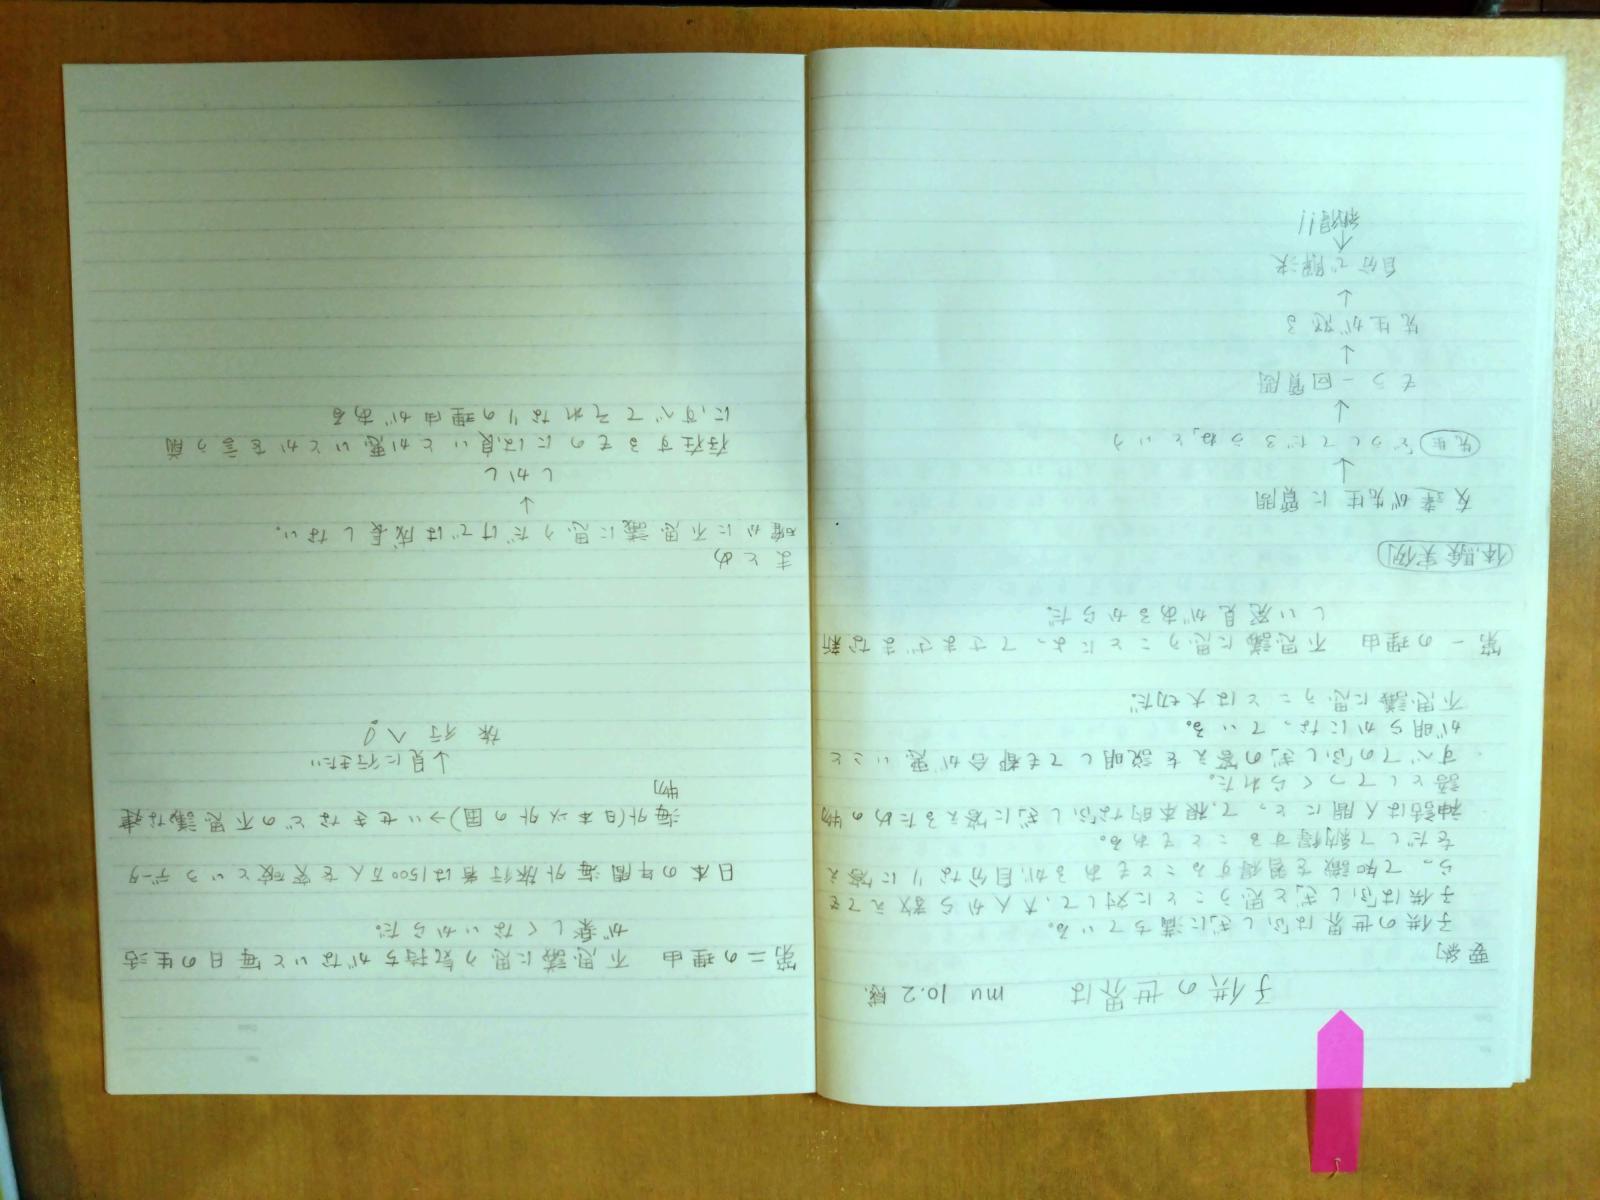 子供の世界は mu 10.2 感
要約
子供の世界はふしぎに満ちている。
子供は「ふしぎ」と思うことに対して、大人から教えても
らって知識を習得することもあるが、自分なりに答え
をだして納得することもある。
神話は人間にとって、根本的な「ふしぎ」に答えるための物
語としてつくられた。
すべての「ふしぎ」の答えを説明しても都合が悪いこと
が明らかになっている。
不思議に思うことは大切だ。
第一の理由 不思議に思うことによってさまざまな新
しい発見があるからだ。
体験実例
友達が先生に質問
↓
先生「どうしてだろうね」という
↓
もう一回質問
↓
先生が怒る
↓
自分で解決
↓
納得!!
第二の理由 不思議に思う気持ちがないと毎日の生活
が楽しくないからだ。
日本の年間海外旅行者は1500万人を突破というデータ
海外(日本以外の国)→いせきなどの不思議な建
物
↓見に行きたい
旅行へ!
まとめ
確かに不思議に思うだけでは成長しない。
↓
しかし
存在するものには良いとか悪いとかを言う前
にすべてそれなりの理由がある